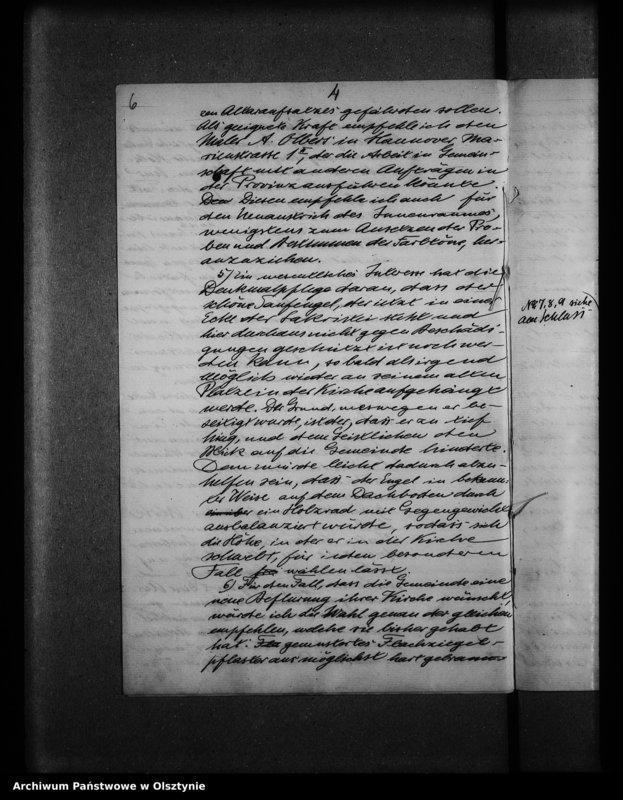 6
4
ren Altaraufsatzes gefährden sollen.
Als geeignete Kraft empfehle ich den
Maler A. Olbers in Hannover, Ma-
rienstrasse 1, der die Arbeit in Gemein-
schaft mit anderen Aufträgen in
der Provinz ausführen könnte.
Diesen empfehle ich auch für
den Neuanstrich des Innenraumes,
wenigstens zum Ansetzen der Pro-
ben und Abstimmen der Farbtöne, her-
anzuziehen.
5) Ein wesentliches Interesse hat die
Denkmalpflege daran, dass der
schöne Taufengel, der jetzt in einer
Ecke der Sakristei steht und
hier durchaus nicht gegen Beschädi-
gungen geschützt ist noch wer-
den kann, sobald als irgend
möglich wieder an seinem alten
Platze in der Kirche aufgehängt
werde. Der Grund, weswegen er be-
seitigt wurde, ist der, dass er zu tief
hing, und dem Geistlichen den
Blick auf die Gemeinde hinderte.
Dem würde leicht dadurch abzu-
helfen sein, dass der Engel in bekann-
ter Weise auf dem Dachboden durch
ein Holzrad mit Gegengewicht
ausbalanziert würde, sodass sich
die Höhe, in der er in der Kirche
schwebt, für jeden besonderen
Fall wählen lässt.
6) Für den Fall, dass die Gemeinde eine
neue Beflurung ihrer Kirche wünscht,
würde ich die Wahl genau der gleichen
empfehlen, welche sie bisher gehabt
hat. gemustertes Flachziegel-
pflaster aus möglichst hart gebrann-
No 7, 8, 9 siehe
am Schluss
Archiwum Państwowe w Olsztynie